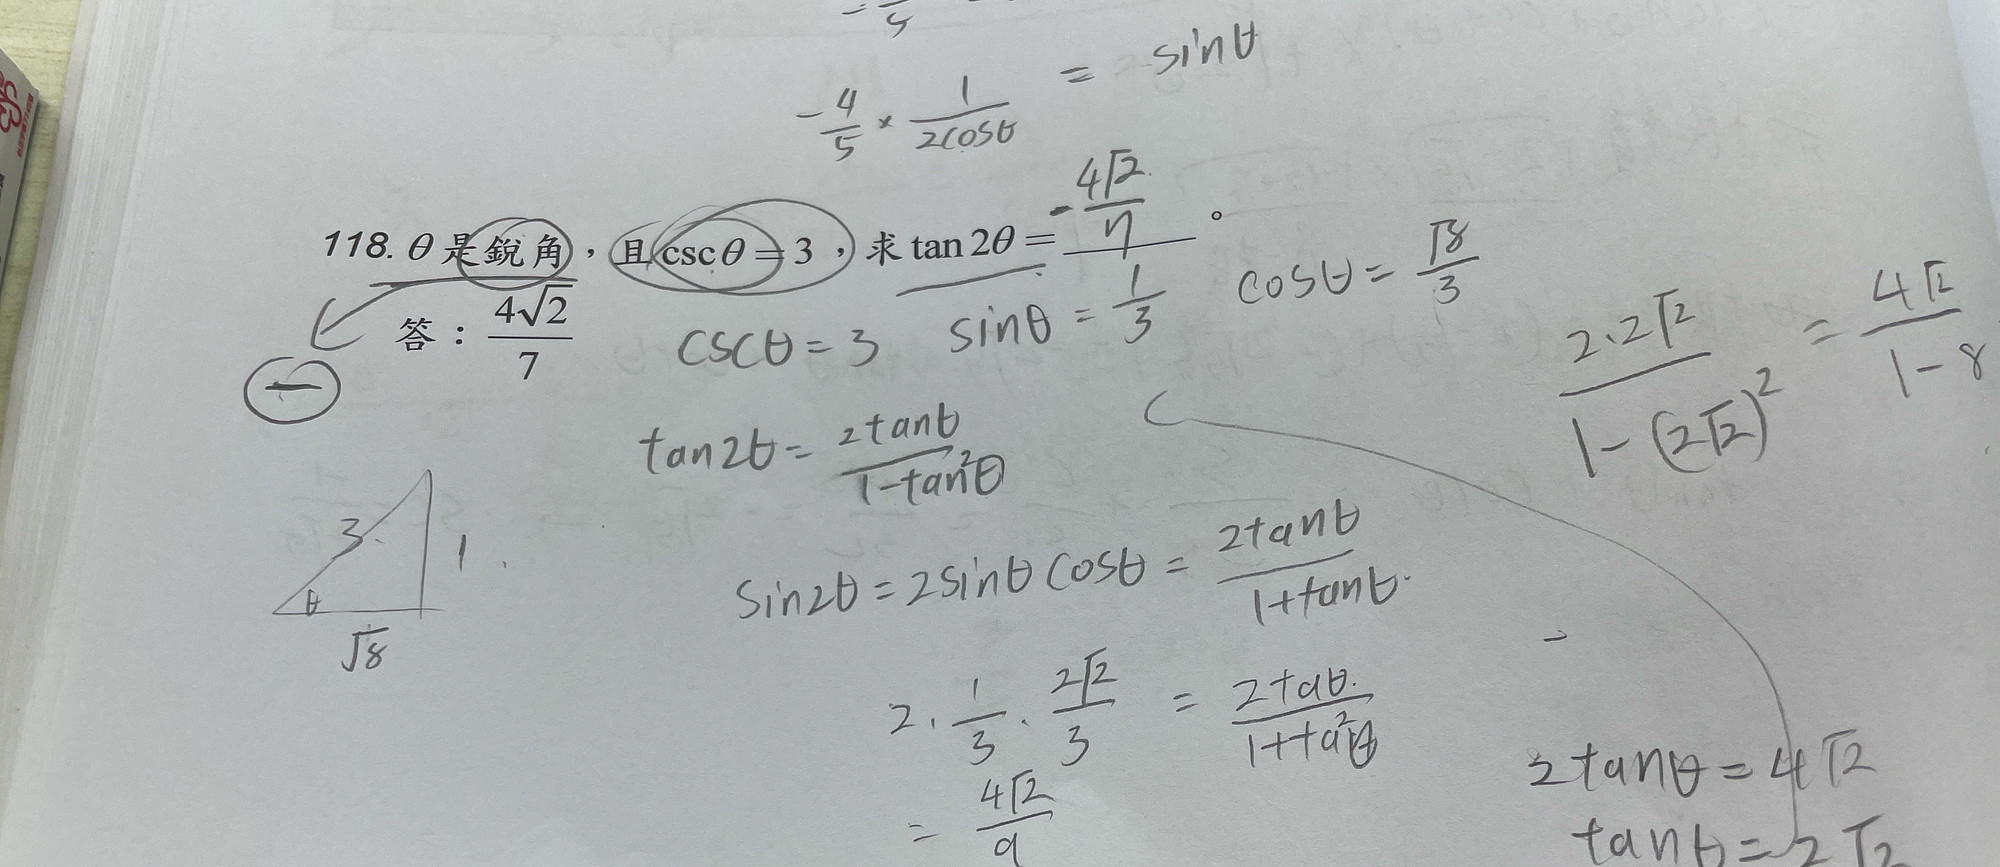 -4/5 × 1/2cosθ = sinθ
118. θ是銳角,且cscθ=3,求tan2θ= -4√2/7 。
答:4√2/7
cscθ=3 sinθ=1/3 cosθ=√8/3
2·2√2/1-(2√2)² = 4√2/1-8
tan2θ= 2tanθ/1-tan²θ
3 1
θ
√8
sin2θ=2sinθcosθ= 2tanθ/1+tanθ
2·1/3·2√2/3 = 2taθ/1+ta²θ
= 4√2/9
2tanθ=4√2
tanθ=2√2